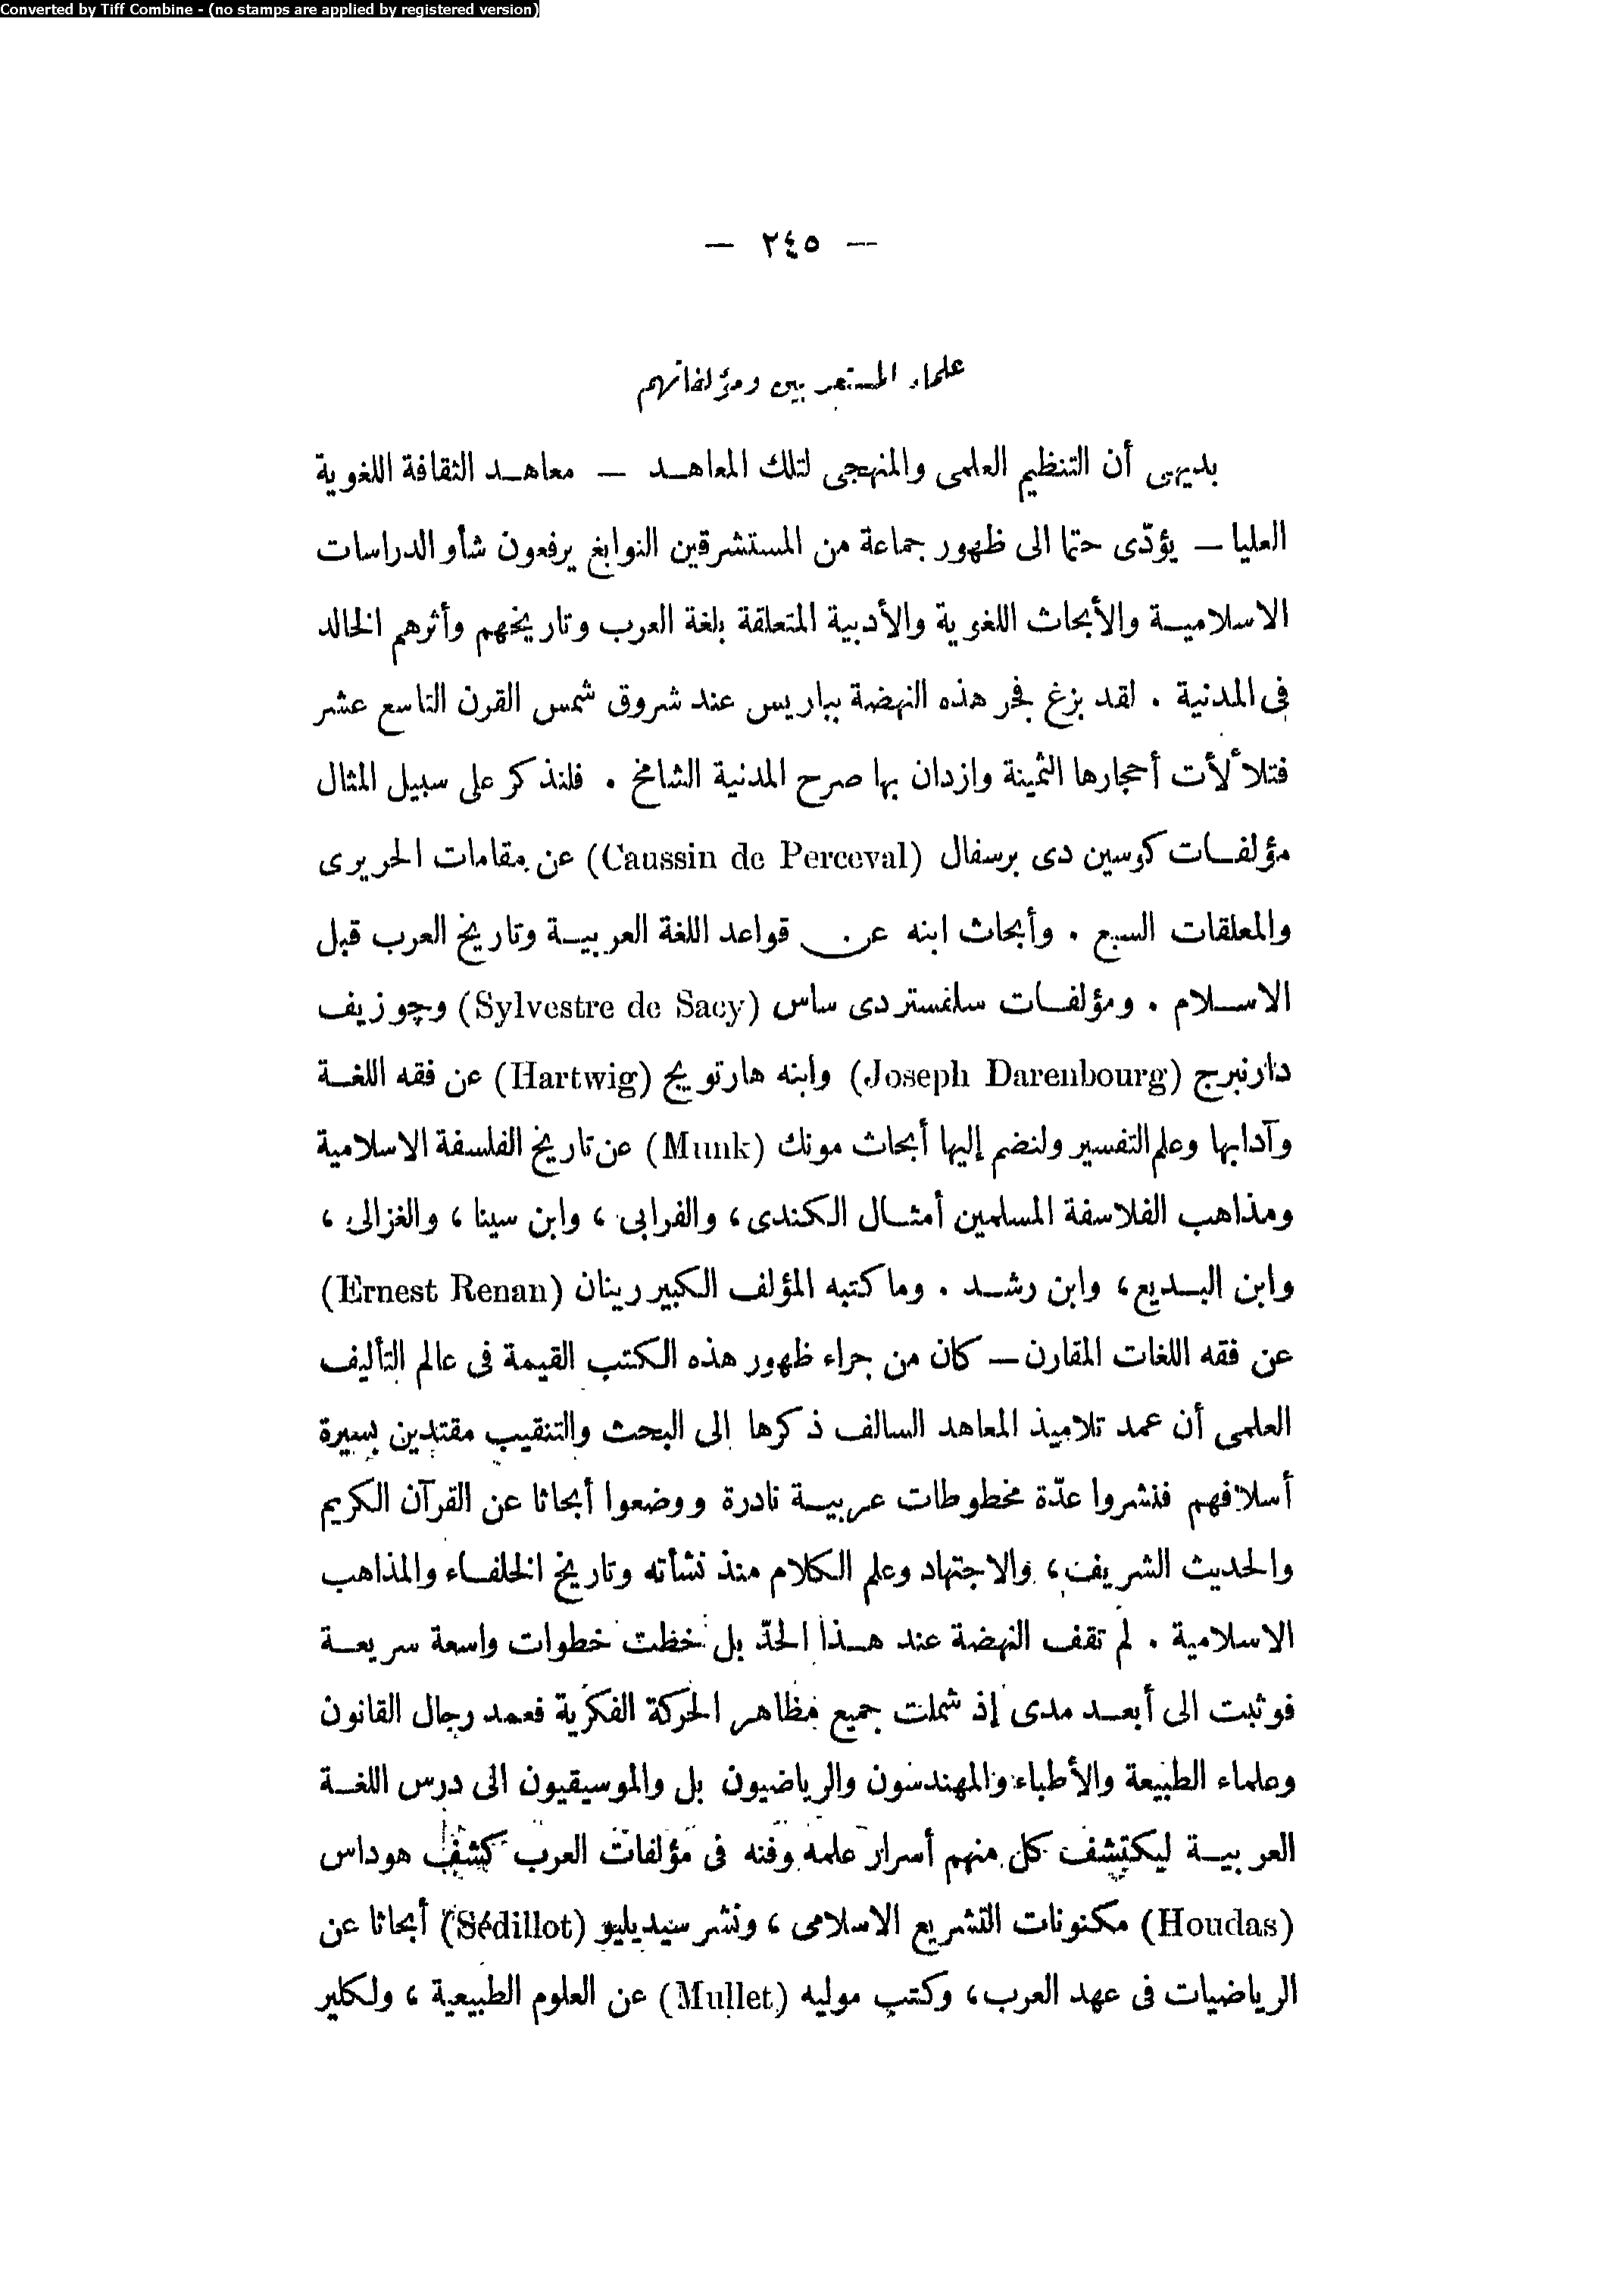 Converted by Tiff Combine - (no stamps are applied by registered version)
— ٢٤٥ —
علماء المستعربين ومؤلفاتهم
بديهى أن التنظيم العلمى والمنهجى لتلك المعاهد — معاهد الثقافة اللغوية
العليا — يؤدّى حتما الى ظهور جماعة من المستشرقين النوابغ يرفعون شأو الدراسات
الاسلامية والأبحاث اللغوية والأدبية المتعلقة بلغة العرب وتاريخهم وأثرهم الخالد
فى المدنية . لقد بزغ فجر هذه النهضة بباريس عند شروق شمس القرن التاسع عشر
فتلألأت أحجارها الثمينة وازدان بها صرح المدنية الشامخ . فلنذكر على سبيل المثال
مؤلفات كوسين دى برسفال (Caussin de Perceval) عن مقامات الحريرى
والمعلقات السبع . وأبحاث ابنه عن قواعد اللغة العربية وتاريخ العرب قبل
الاسلام . ومؤلفات سلفستر دى ساس (Sylvestre de Sacy) وچوزيف
دارنبرج (Joseph Darenbourg) وابنه هارتويج (Hartwig) عن فقه اللغة
وآدابها وعلم التفسير ولنضم إليها أبحاث مونك (Munk) عن تاريخ الفلسفة الاسلامية
ومذاهب الفلاسفة المسلمين أمثال الكندى، والفرابى، وابن سينا، والغزالى،
وابن البديع، وابن رشد . وما كتبه المؤلف الكبير رينان (Ernest Renan)
عن فقه اللغات المقارن — كان من جراء ظهور هذه الكتب القيمة فى عالم التأليف
العلمى أن عمد تلاميذ المعاهد السالف ذكرها إلى البحث والتنقيب مقتدين بسيرة
أسلافهم فنشروا عدّة مخطوطات عربية نادرة ووضعوا أبحاثا عن القرآن الكريم
والحديث الشريف، والاجتهاد وعلم الكلام منذ نشأته وتاريخ الخلفاء والمذاهب
الاسلامية . لم تقف النهضة عند هذا الحدّ بل خطت خطوات واسعة سريعة
فوثبت الى أبعد مدى إذ شملت جميع مظاهر الحركة الفكرية فعمد رجال القانون
وعلماء الطبيعة والأطباء والمهندسون والرياضيون بل والموسيقيون الى درس اللغة
العربية ليكتشف كل منهم أسرار علمه وفنه فى مؤلفات العرب كشف هوداس
(Houdas) مكنونات التشريع الاسلامى، ونشر سيديليو (Sédillot) أبحاثا عن
الرياضيات فى عهد العرب، وكتب موليه (Mullet) عن العلوم الطبيعية، ولكلير